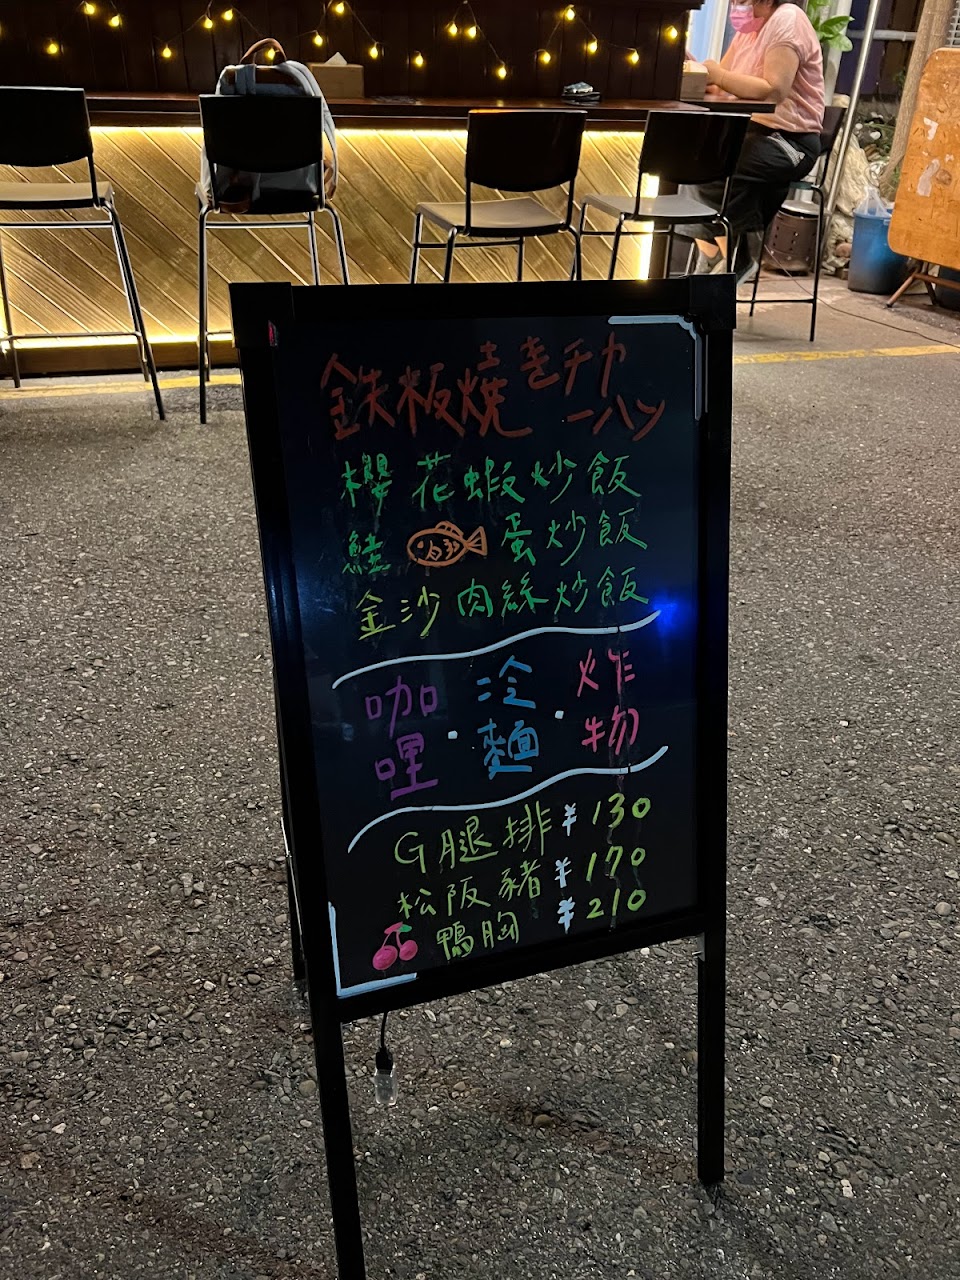 鉄板焼きチャーハン
櫻花蝦炒飯
鮭魚蛋炒飯
金沙肉絲炒飯
咖哩・冷麵・炸物
G腿排 ¥130
松阪豬 ¥170
鴨胸 ¥210